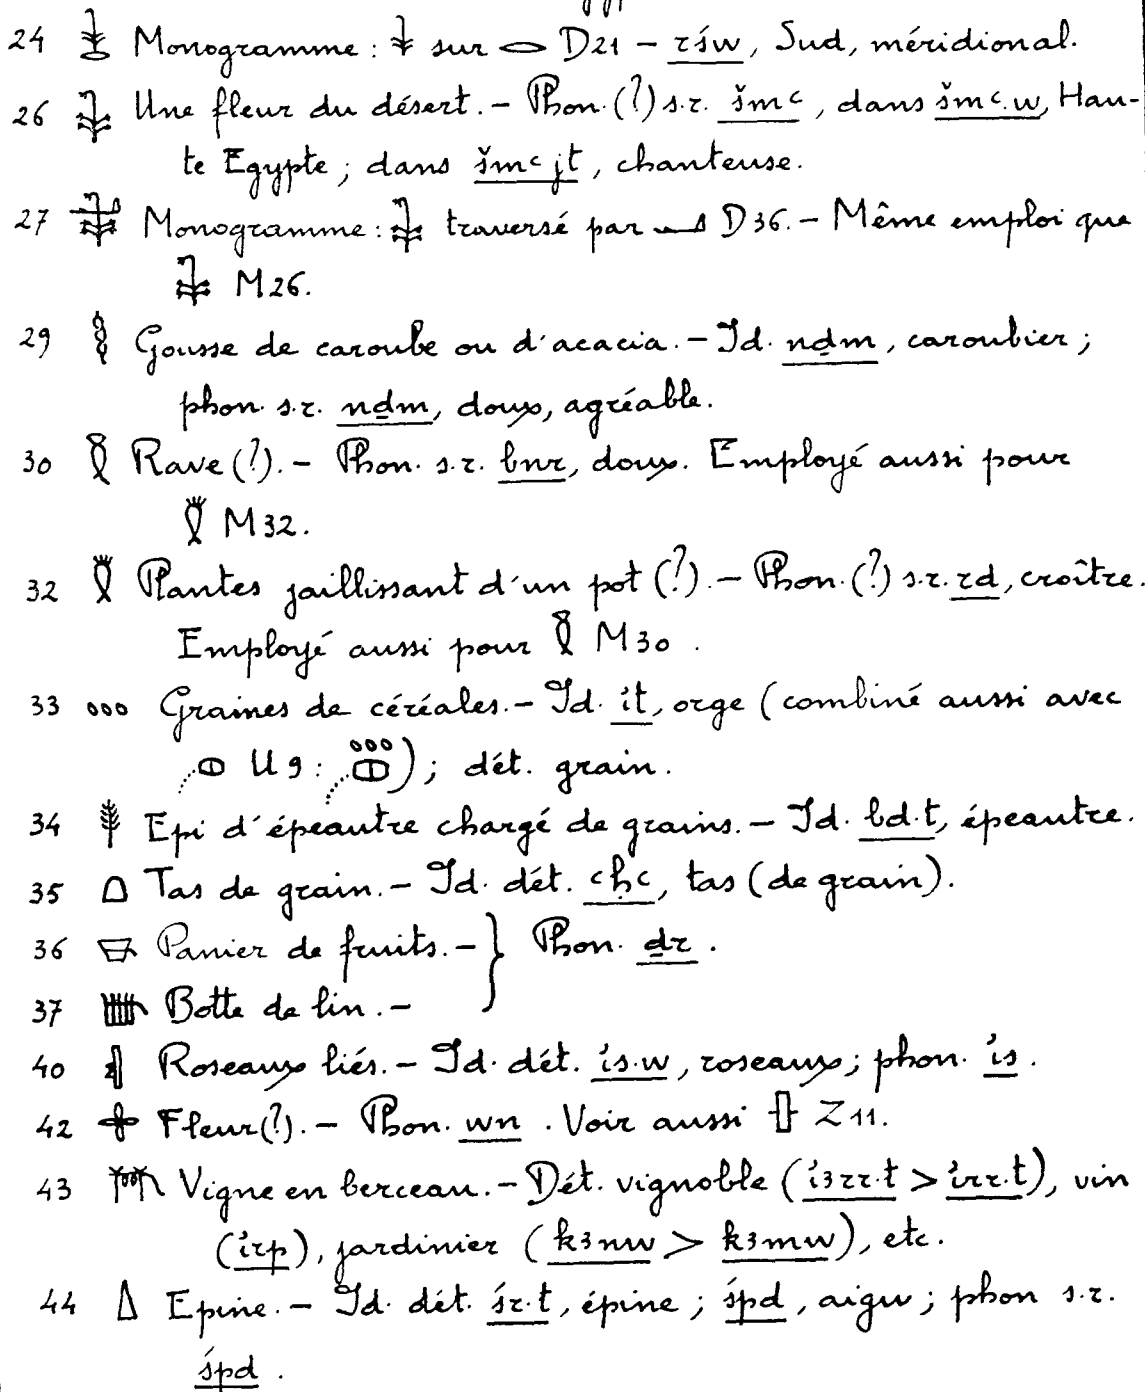 24 𓇔 Monogramme : 𓇓 sur 𓂋 D21 – rśw, Sud, méridional.
26 𓇗 Une fleur du désert. – Phon. (?) s.r. šmʿ, dans šmʿ.w, Hau-
te Egypte ; dans šmʿjt, chanteuse.
27 𓇘 Monogramme : 𓇗 traversé par 𓂝 D36. – Même emploi que
𓇗 M26.
29 𓇛 Gousse de caroube ou d'acacia. – Id. nḏm, caroubier ;
phon. s.r. nḏm, doux, agréable.
30 𓇜 Rave (?). – Phon. s.r. bnr, doux. Employé aussi pour
𓇥 M32.
32 𓇥 Plantes jaillissant d'un pot (?). – Phon. (?) s.r. rd, croître.
Employé aussi pour 𓇜 M30.
33 𓇦 Graines de céréales. – Id. ἰt, orge (combiné aussi avec
𓌽 U9 : 𓌾) ; dét. grain.
34 𓇩 Epi d'épeautre chargé de grains. – Id. bd.t, épeautre.
35 𓇪 Tas de grain. – Id. dét. ʿḥʿ, tas (de grain).
36 𓇫 Panier de fruits. – } Phon. ḏr.
37 𓇬 Botte de lin. –
40 𓇩 Roseaux liés. – Id. dét. ἰs.w, roseaux ; phon. ἰs.
42 𓇬 Fleur (?). – Phon. wn. Voir aussi 𓏶 Z11.
43 𓇭 Vigne en berceau. – Dét. vignoble (ἰꜣrr.t > ἰrr.t), vin
(ἰrp), jardinier (kꜣnw > kꜣmw), etc.
44 𓇮 Epine. – Id. dét. śr.t, épine ; śpd, aigu ; phon s.r.
śpd.